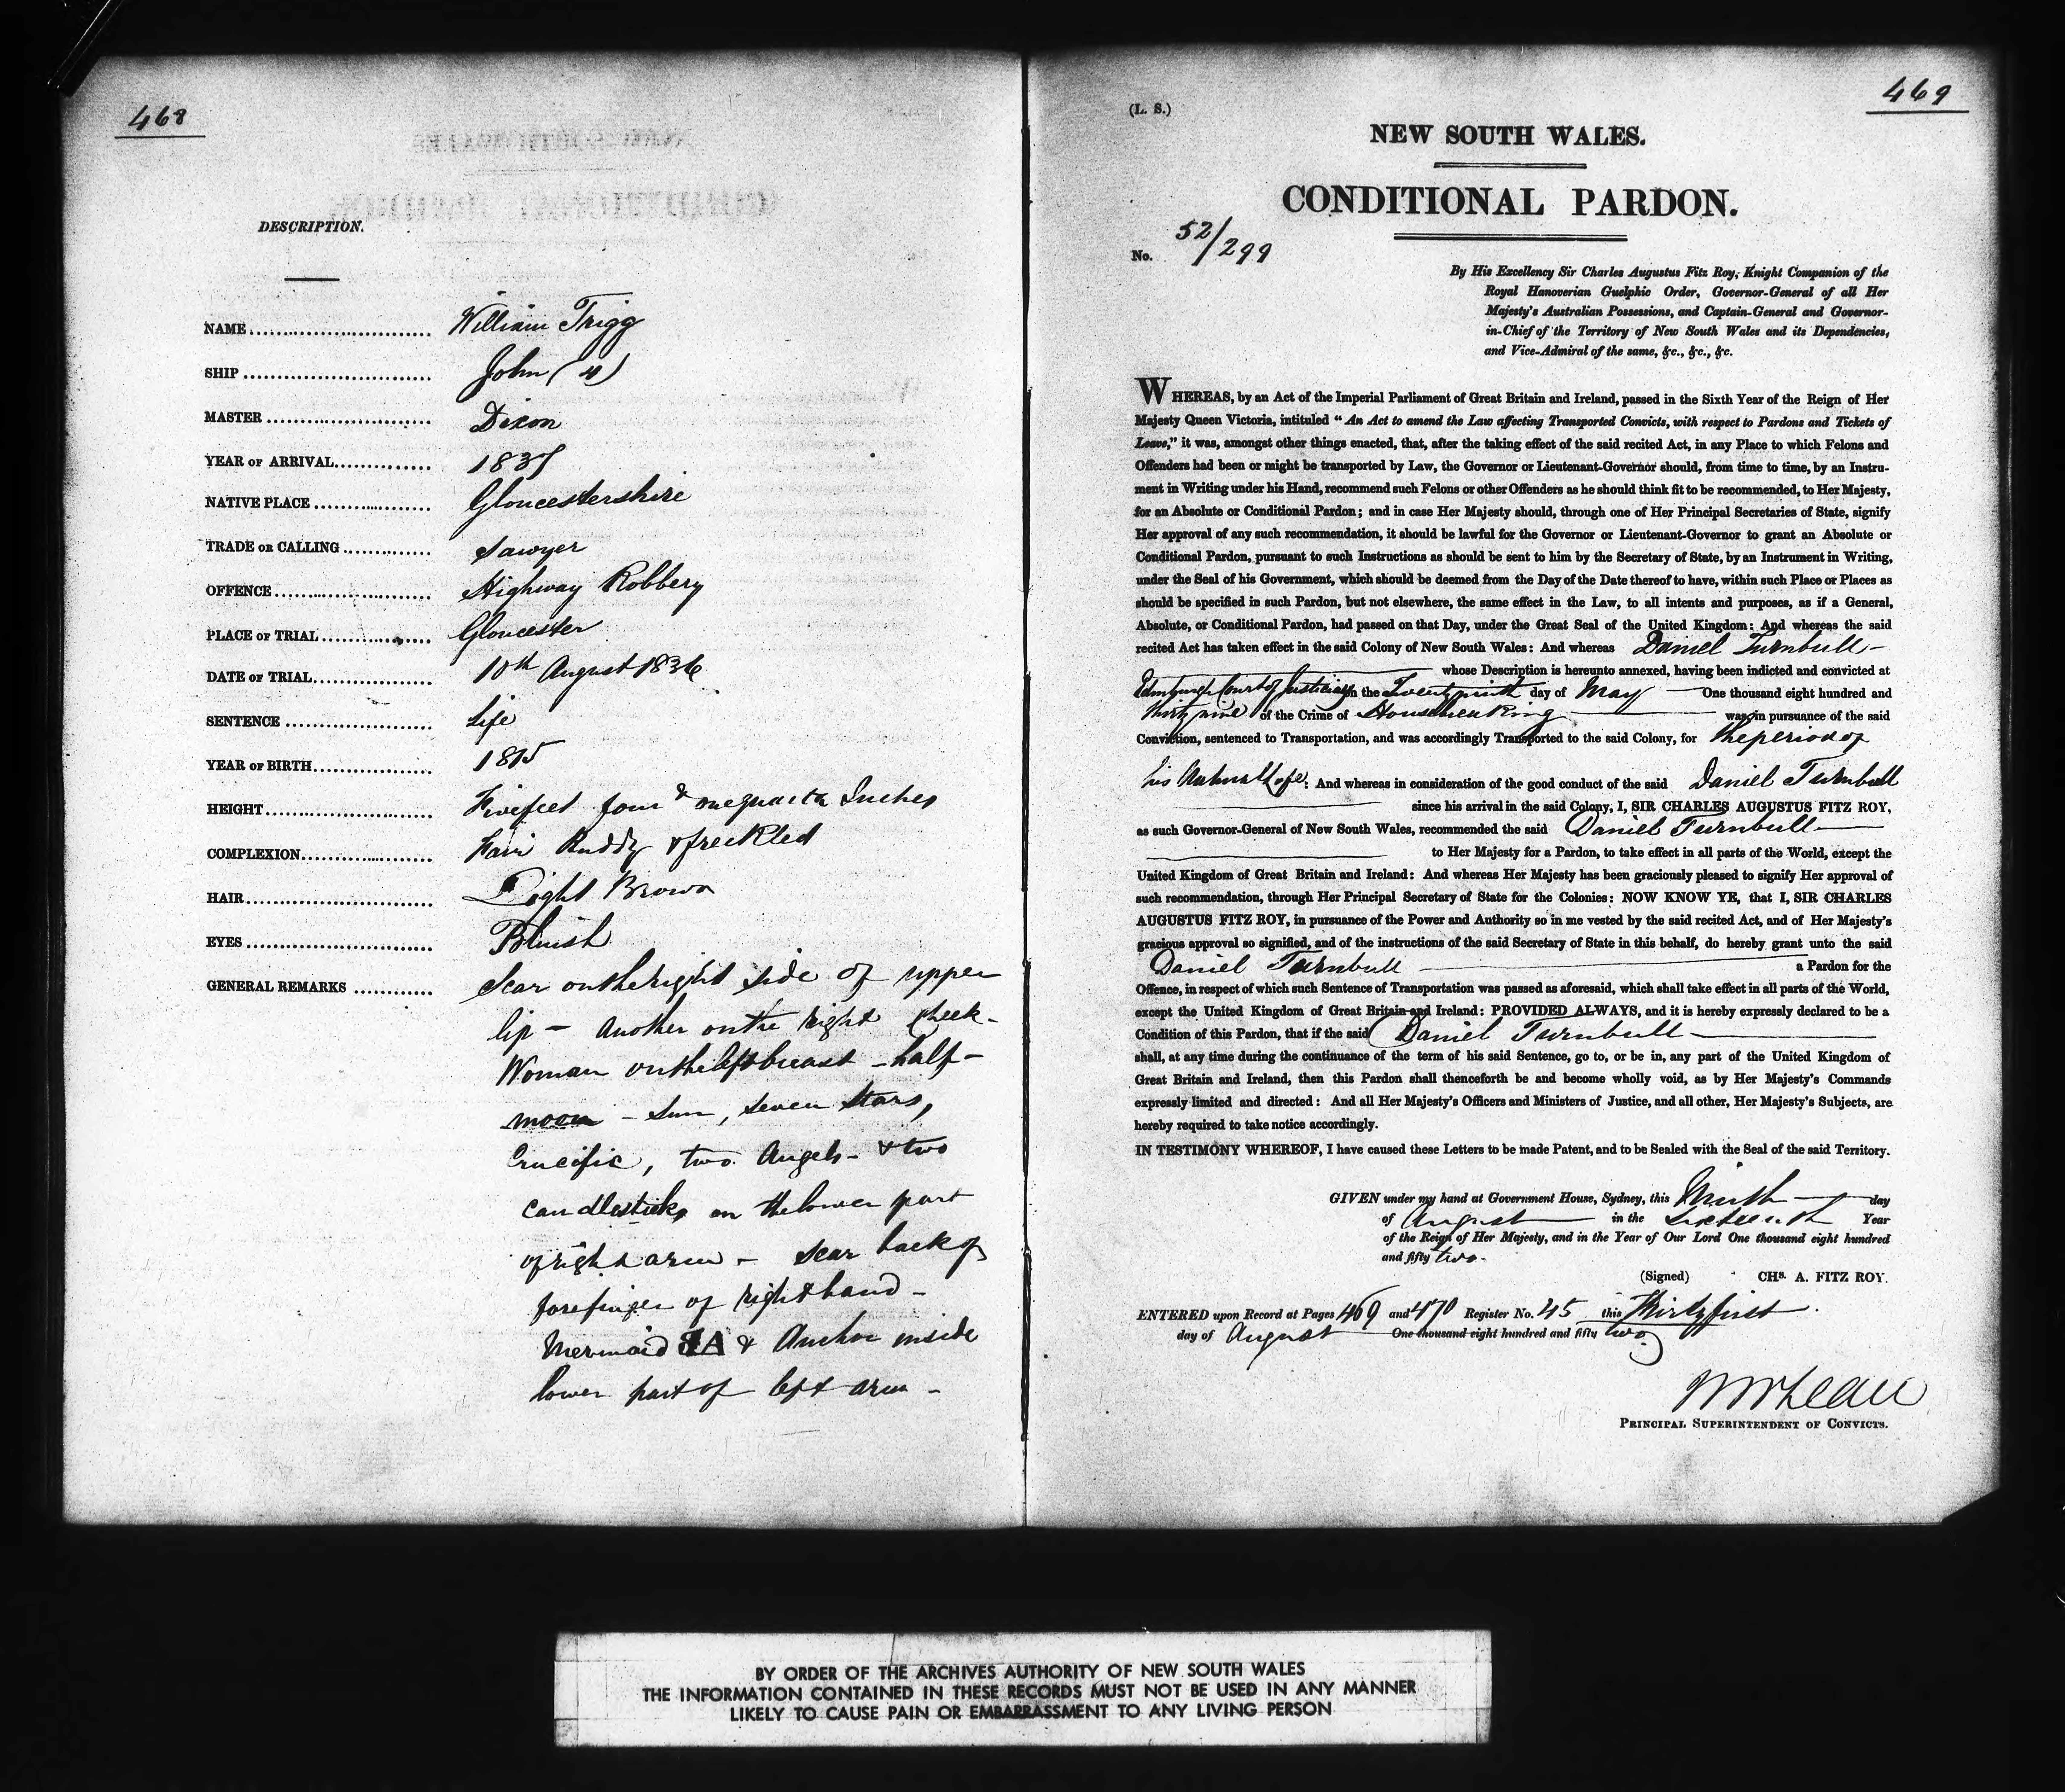 468
DESCRIPTION.
NAME.............................. William Trigg
SHIP .............................. John (4)
MASTER .............................. Dixon
YEAR OF ARRIVAL.............. 1837
NATIVE PLACE .................... Gloucestershire
TRADE OR CALLING .............. Sawyer
OFFENCE.......................... Highway Robbery
PLACE OF TRIAL.................. Gloucester
DATE OF TRIAL.................. 10th August 1836
SENTENCE ........................ Life
YEAR OF BIRTH.................. 1815
HEIGHT............................ Five feet four & one quarter Inches
COMPLEXION...................... Fair Ruddy & freckled
HAIR.............................. Light Brown
EYES .............................. Bluish
GENERAL REMARKS ............ Scar on the right side of upper
lip – Another on the right cheek –
Woman on the left breast – half –
moon – Sun, seven Stars,
Crucific, two Angels – & two
Candlesticks on the lower part
of right arm – Scar back of
forefinger of right hand –
Mermaid & Anchor inside
lower part of left arm –
469
(L. S.)
NEW SOUTH WALES.
CONDITIONAL PARDON.
No. 52/299
By His Excellency Sir Charles Augustus Fitz Roy, Knight Companion of the
Royal Hanoverian Guelphic Order, Governor-General of all Her
Majesty's Australian Possessions, and Captain-General and Governor-
in-Chief of the Territory of New South Wales and its Dependencies,
and Vice-Admiral of the same, &c., &c., &c.
WHEREAS, by an Act of the Imperial Parliament of Great Britain and Ireland, passed in the Sixth Year of the Reign of Her
Majesty Queen Victoria, intituled "An Act to amend the Law affecting Transported Convicts, with respect to Pardons and Tickets of
Leave," it was, amongst other things enacted, that, after the taking effect of the said recited Act, in any Place to which Felons and
Offenders had been or might be transported by Law, the Governor or Lieutenant-Governor should, from time to time, by an Instru-
ment in Writing under his Hand, recommend such Felons or other Offenders as he should think fit to be recommended, to Her Majesty,
for an Absolute or Conditional Pardon; and in case Her Majesty should, through one of Her Principal Secretaries of State, signify
Her approval of any such recommendation, it should be lawful for the Governor or Lieutenant-Governor to grant an Absolute or
Conditional Pardon, pursuant to such Instructions as should be sent to him by the Secretary of State, by an Instrument in Writing,
under the Seal of his Government, which should be deemed from the Day of the Date thereof to have, within such Place or Places as
should be specified in such Pardon, but not elsewhere, the same effect in the Law, to all intents and purposes, as if a General,
Absolute, or Conditional Pardon, had passed on that Day, under the Great Seal of the United Kingdom: And whereas the said
recited Act has taken effect in the said Colony of New South Wales: And whereas Daniel Turnbull –
whose Description is hereunto annexed, having been indicted and convicted at
Edinburgh Court of Justiciary on the Twenty ninth day of May One thousand eight hundred and
thirty nine of the Crime of Housebreaking was, in pursuance of the said
Conviction, sentenced to Transportation, and was accordingly Transported to the said Colony, for the period of
his Natural Life: And whereas in consideration of the good conduct of the said Daniel Turnbull
since his arrival in the said Colony, I, SIR CHARLES AUGUSTUS FITZ ROY,
as such Governor-General of New South Wales, recommended the said Daniel Turnbull
to Her Majesty for a Pardon, to take effect in all parts of the World, except the
United Kingdom of Great Britain and Ireland: And whereas Her Majesty has been graciously pleased to signify Her approval of
such recommendation, through Her Principal Secretary of State for the Colonies: NOW KNOW YE, that I, SIR CHARLES
AUGUSTUS FITZ ROY, in pursuance of the Power and Authority so in me vested by the said recited Act, and of Her Majesty's
gracious approval so signified, and of the instructions of the said Secretary of State in this behalf, do hereby grant unto the said
Daniel Turnbull a Pardon for the
Offence, in respect of which such Sentence of Transportation was passed as aforesaid, which shall take effect in all parts of the World,
except the United Kingdom of Great Britain and Ireland: PROVIDED ALWAYS, and it is hereby expressly declared to be a
Condition of this Pardon, that if the said Daniel Turnbull
shall, at any time during the continuance of the term of his said Sentence, go to, or be in, any part of the United Kingdom of
Great Britain and Ireland, then this Pardon shall thenceforth be and become wholly void, as by Her Majesty's Commands
expressly limited and directed: And all Her Majesty's Officers and Ministers of Justice, and all other, Her Majesty's Subjects, are
hereby required to take notice accordingly.
IN TESTIMONY WHEREOF, I have caused these Letters to be made Patent, and to be Sealed with the Seal of the said Territory.
GIVEN under my hand at Government House, Sydney, this Ninth day
of August in the Sixteenth Year
of the Reign of Her Majesty, and in the Year of Our Lord One thousand eight hundred
and fifty two.
(Signed) CHS. A. FITZ ROY.
ENTERED upon Record at Pages 469 and 470 Register No. 45 this Thirty first
day of August One thousand eight hundred and fifty two
PRINCIPAL SUPERINTENDENT OF CONVICTS.
BY ORDER OF THE ARCHIVES AUTHORITY OF NEW SOUTH WALES
THE INFORMATION CONTAINED IN THESE RECORDS MUST NOT BE USED IN ANY MANNER
LIKELY TO CAUSE PAIN OR EMBARRASSMENT TO ANY LIVING PERSON